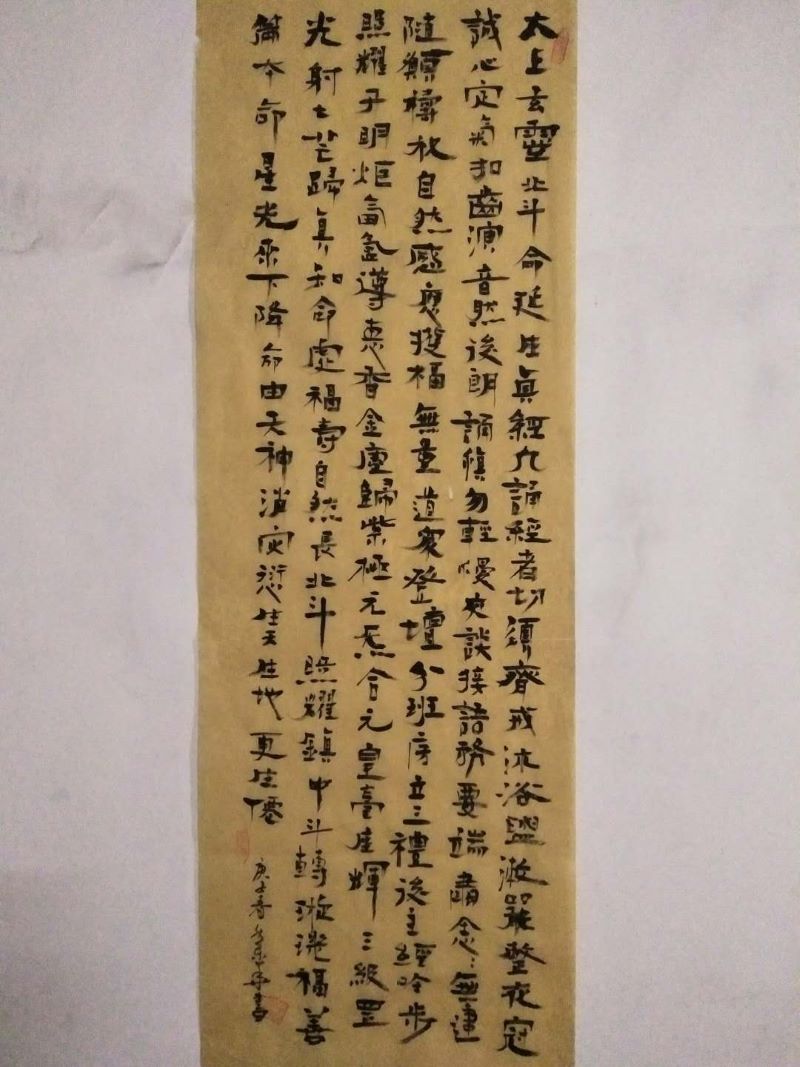 太上玄靈北斗命延生真經凡誦經者切須齊戒沐浴盥漱嚴整衣冠
誠心定氣扣齒演音然後朗誦慎勿輕慢交談接語務要端肅念〻無違
隨願禱祝自然感應獲福無量道衆登壇分班序立三禮後主經吟步
照耀子明炬氤氳導惠香金塵歸紫極元炁合元皇臺座輝三級罡
光射七芒歸真知命處福壽自然長北斗照耀鎮中斗轉璇璣福善
本命星光來下降命由天神消灾愆生天生地更生僊
庚子春書